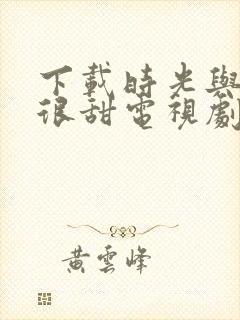 下載時光與
很甜電視劇
黃雲峰